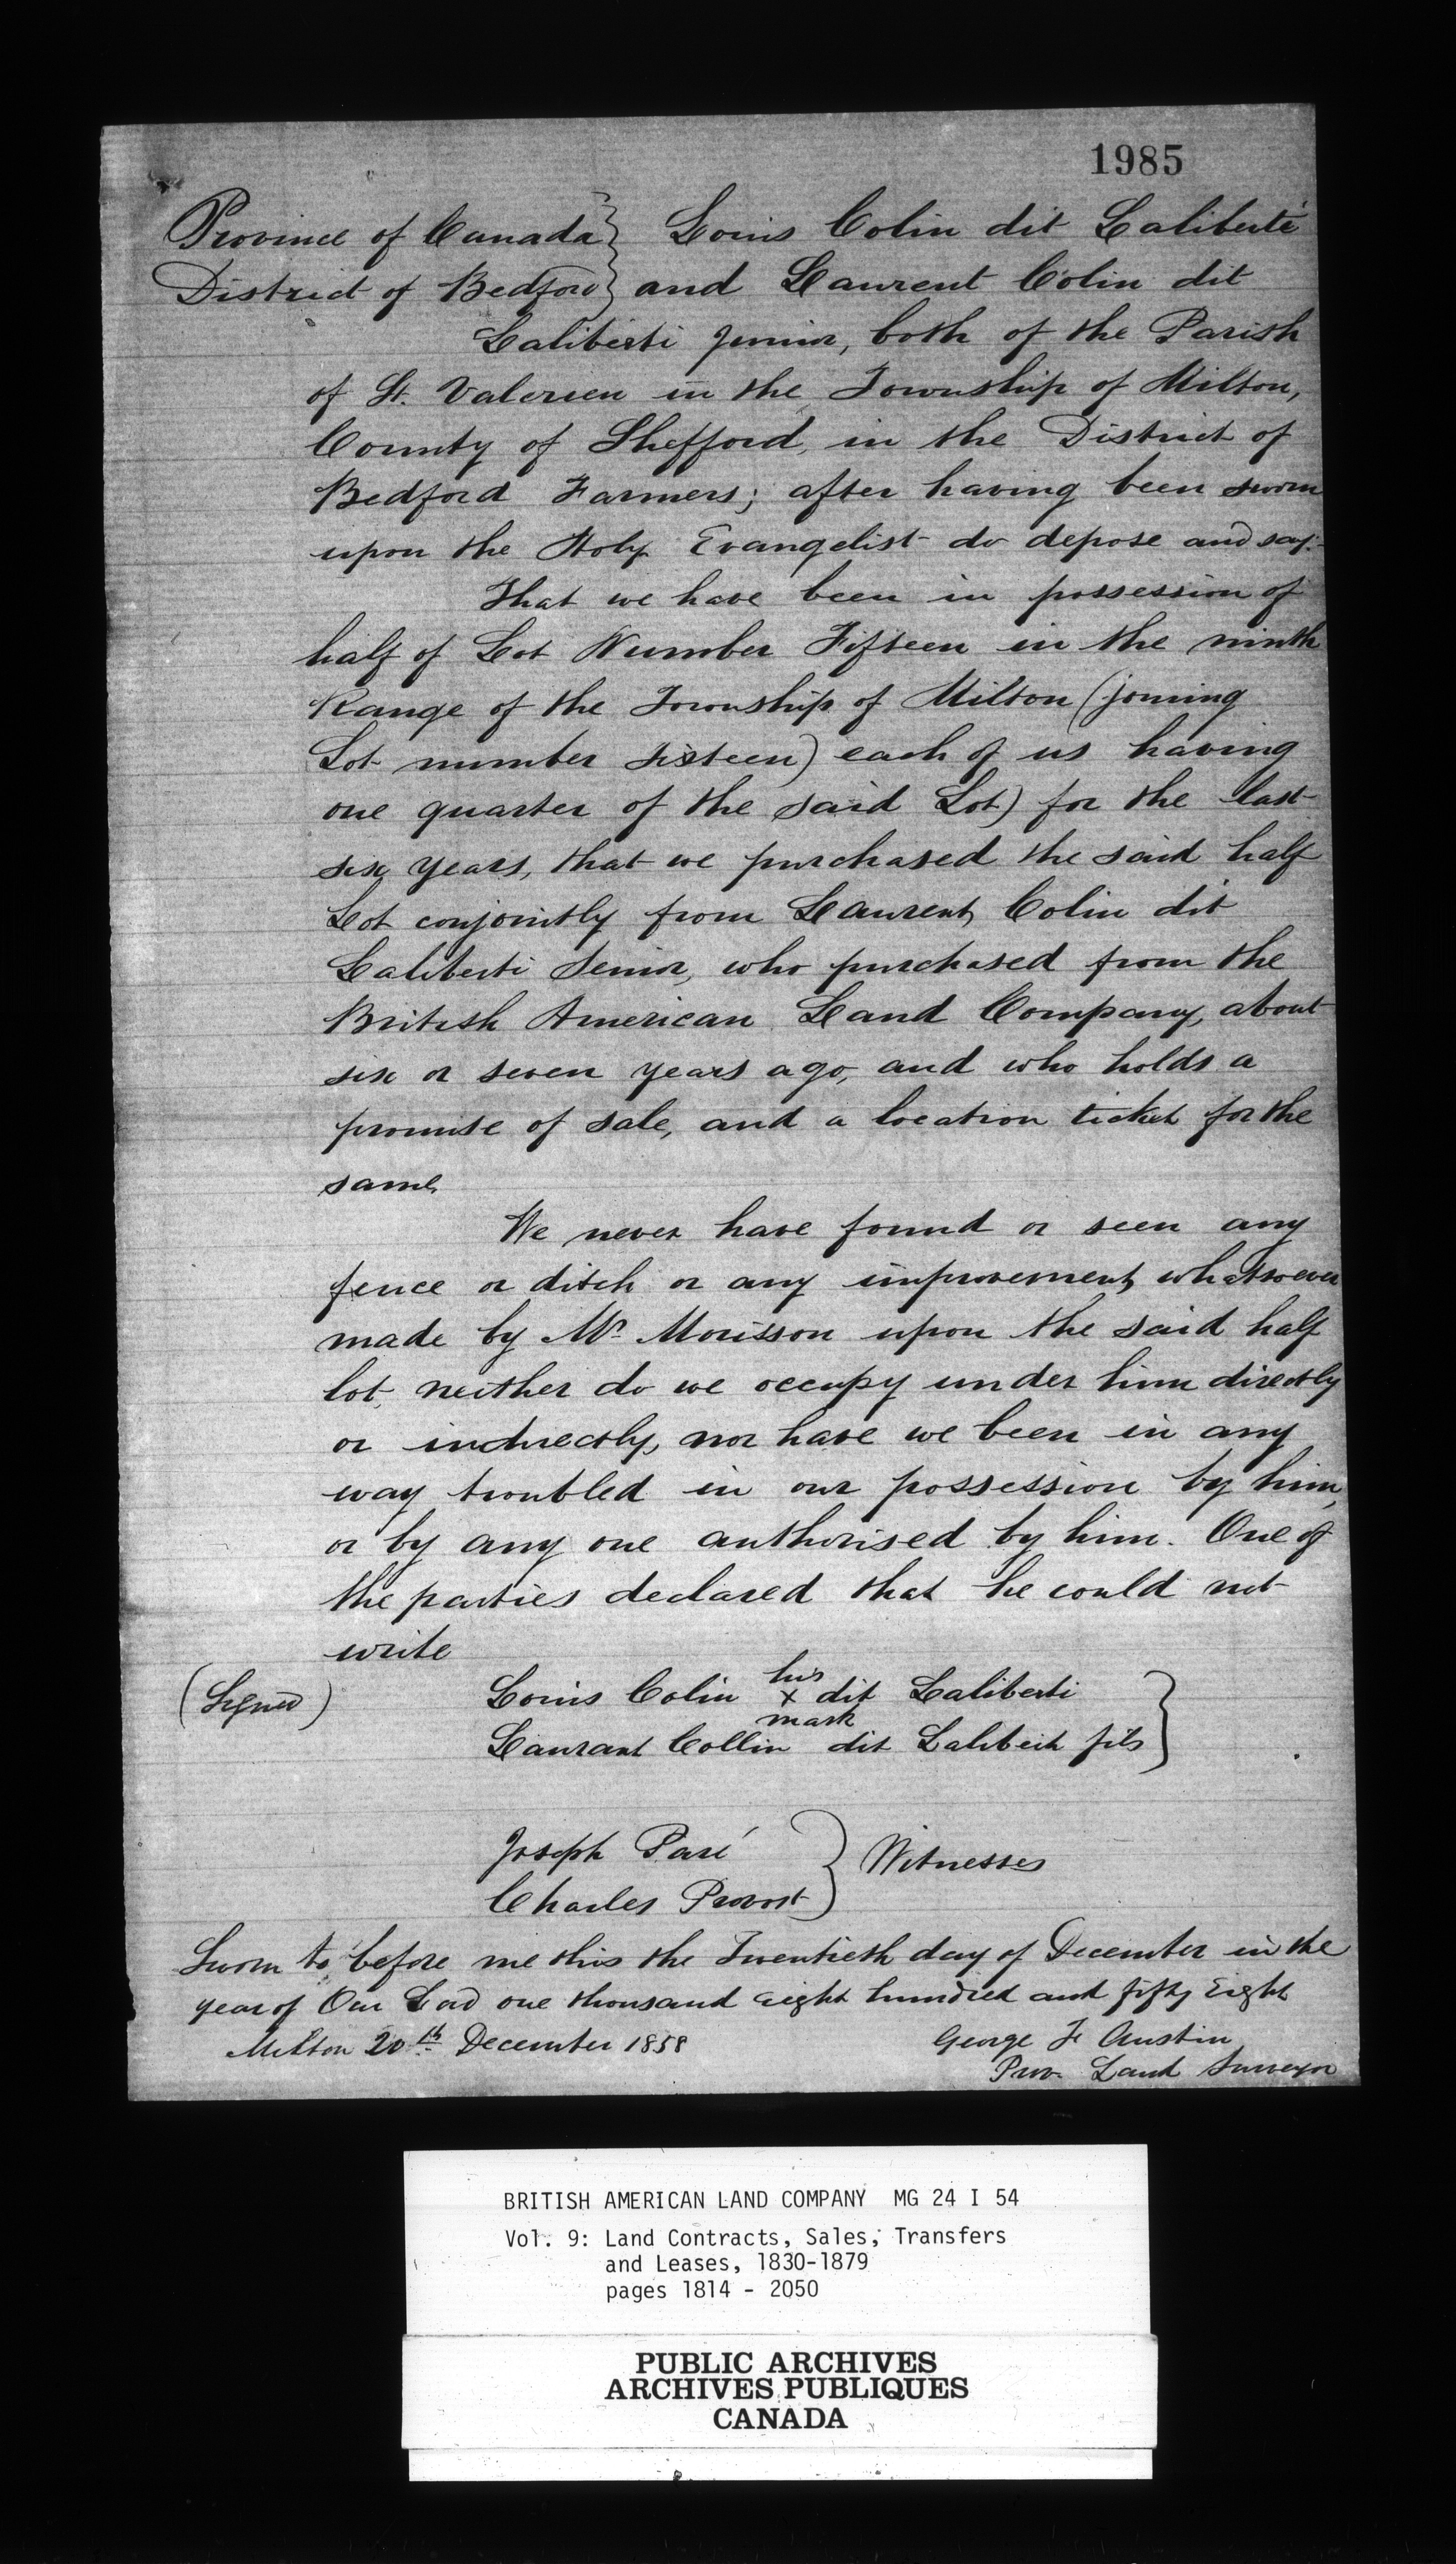 1985
Province of Canada } Louis Colin dit Laliberté
District of Bedford } and Laurent Colin dit
Laliberti junior, both of the Parish
of St. Valerien in the Township of Milton,
County of Shefford, in the District of
Bedford Farmers; after having been sworn
upon the Holy Evangelist do depose and say:-
That we have been in possession of
half of Lot Number Fifteen in the ninth
Range of the Township of Milton (joining
Lot number sixteen) each of us having
one quarter of the said Lot) for the last
six years, that we purchased the said half
Lot conjointly from Laurent Colin dit
Laliberti Senior, who purchased from the
British American Land Company, about
six or seven years ago, and who holds a
promise of sale, and a location ticket for the
same.
We never have found or seen any
fence or ditch or any improvement whatsoever
made by Mr. Morisson upon the said half
lot, neither do we occupy under him directly
or indirectly, nor have we been in any
way troubled in our possession by him,
or by any one authorised by him. One of
the parties declared that he could not
write
(Signed) Louis Colin his x mark dit Laliberti }
Laurant Collin dit Laliberti fils }
Joseph Paré } Witnesses
Charles Provost }
Sworn to before me this the Twentieth day of December in the
year of Our Lord one thousand eight hundred and fifty Eight
Milton 20th December 1858 George F Austin
Prov. Land Surveyor
BRITISH AMERICAN LAND COMPANY MG 24 I 54
Vol. 9: Land Contracts, Sales, Transfers
and Leases, 1830-1879
pages 1814 - 2050
PUBLIC ARCHIVES
ARCHIVES PUBLIQUES
CANADA